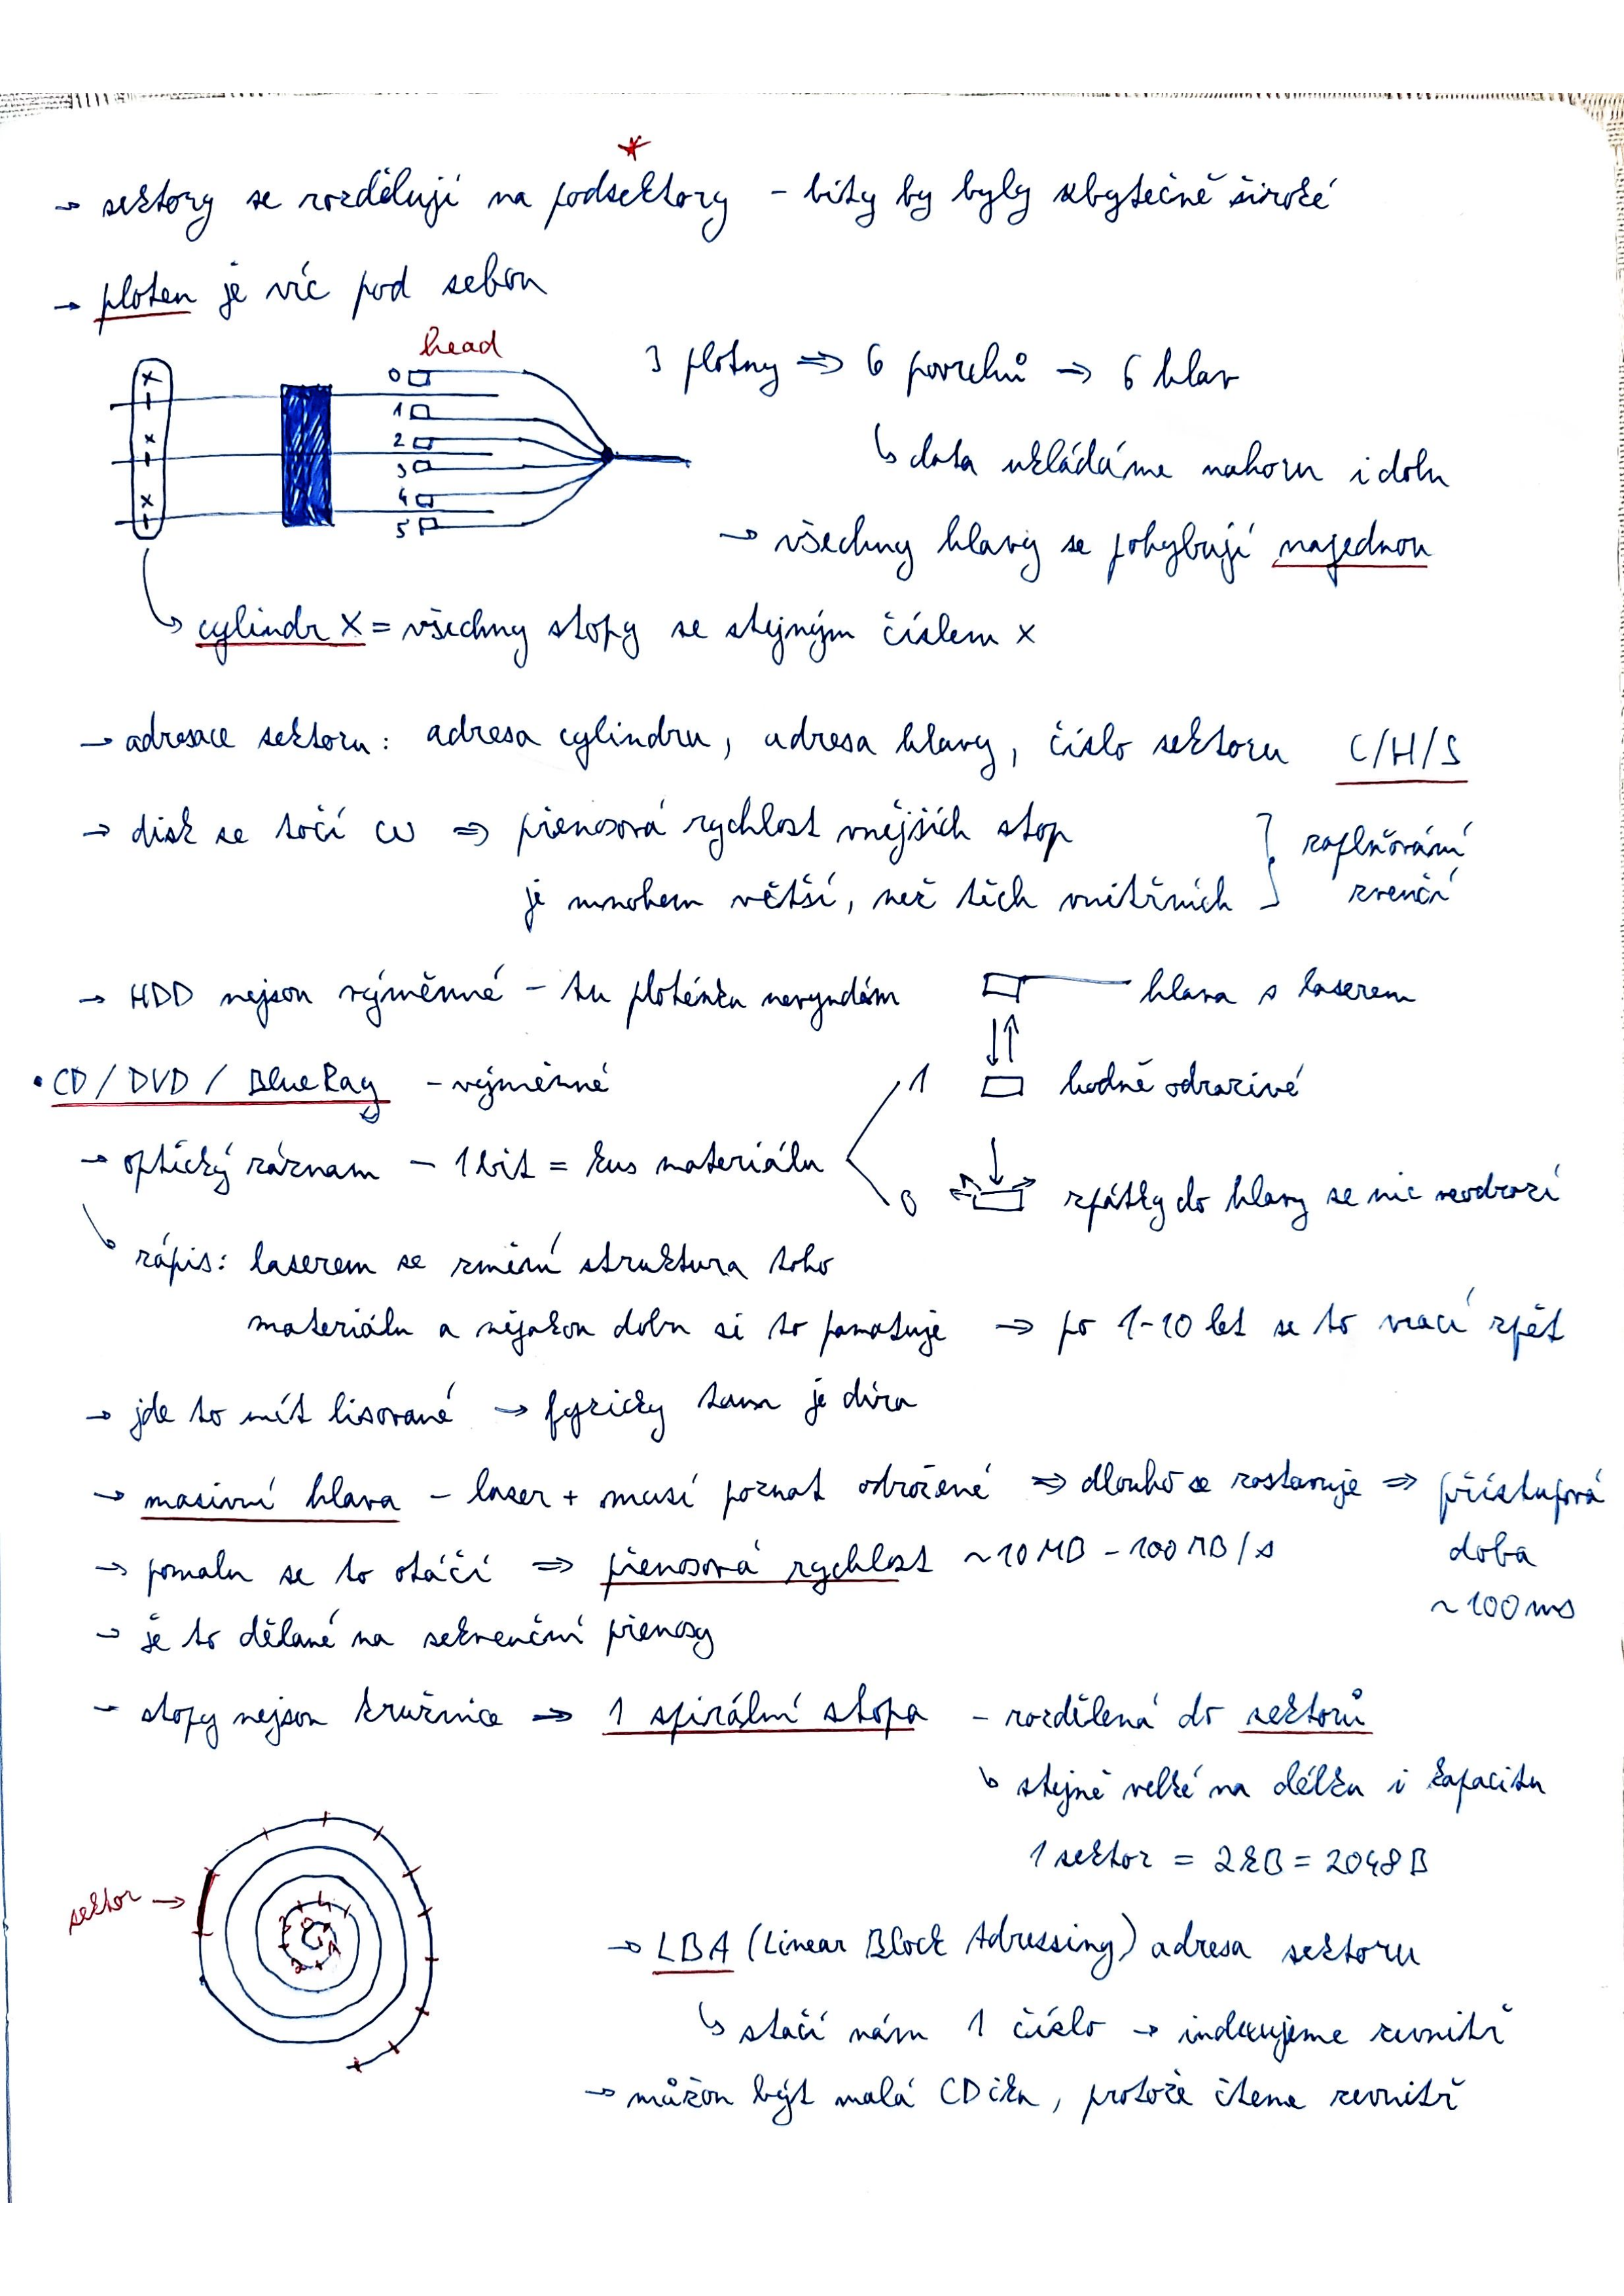 *
→ sektory se rozdělují na podsektory - bity by byly zbytečně široké
→ ploten je víc pod sebou
head
0
1
2
3
4
5
x
x
x
3 plotny ⇒ 6 povrchů → 6 hlav
↳ data ukládáme nahoru i dolu
→ všechny hlavy se pohybují najednou
↳ cylindr X = všechny stopy se stejným číslem x
→ adresace sektoru: adresa cylindru, adresa hlavy, číslo sektoru C/H/S
→ disk se točí ω ⇒ přenosová rychlost vnějších stop
je mnohem větší, než těch vnitřních
zaplňování
zvenčí
→ HDD nejsou výměnné - tu ploténku nevyndám
hlava s laserem
• CD / DVD / BlueRay - výměnné
1 hodně odrazivé
→ optický záznam - 1 bit = kus materiálu
0 zpátky do hlavy se nic neodrazí
↳ zápis: laserem se změní struktura toho
materiálu a nějakou dobu si to pamatuje → po 1-10 let se to vrací zpět
→ jde to mít lisované → fyzicky tam je díra
→ masivní hlava - laser + musí poznat odražené ⇒ dlouho se zastavuje ⇒ přístupová
doba
~100 ms
→ pomalu se to otáčí ⇒ přenosová rychlost ~10 MB - 100 MB/s
→ je to dělané na sekvenční přenosy
- stopy nejsou kružnice ⇒ 1 spirální stopa - rozdělená do sektorů
↳ stejně velké na délku i kapacitu
1 sektor = 2kB = 2048 B
sektor →
→ LBA (Linear Block Adressing) adresa sektoru
↳ stačí nám 1 číslo → indexujeme zevnitř
→ můžou být malá CDčka, protože čteme zevnitř